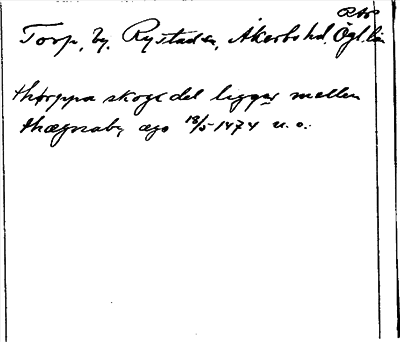 Torp, by, Rystad sn, Åkerbo hd, Ögl. län
thorppa skogs del ligger mellen
thægnaby ægo 18/5 1474 u. o.